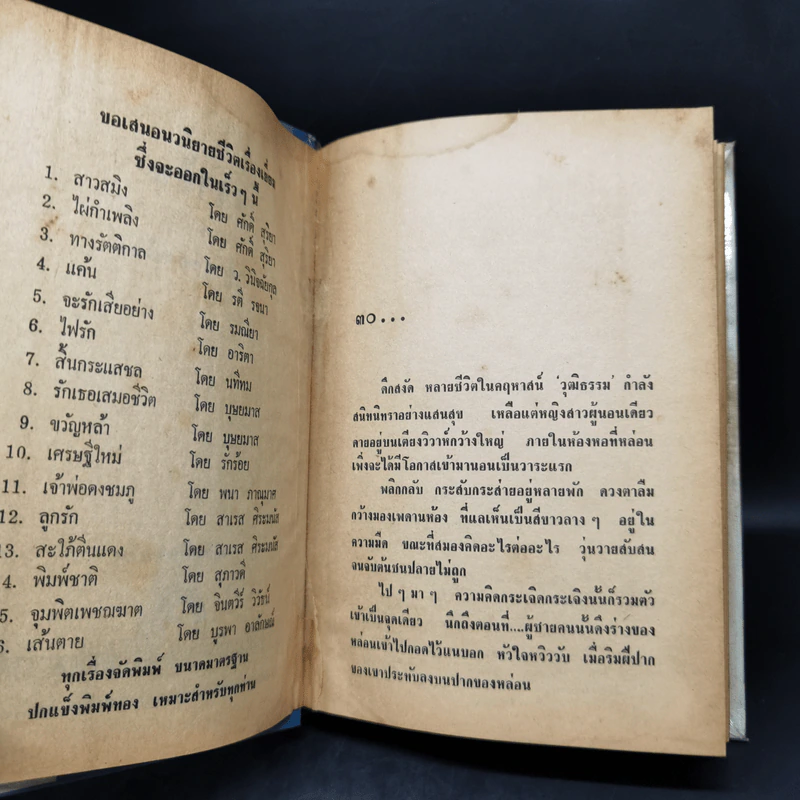 ขอเสนอนวนิยายชีวิตเรื่องเยี่ยม
ซึ่งจะออกในเร็วๆ นี้
1. สาวสมิง โดย ศักดิ์ สุริยา
2. ไผ่กำเพลิง โดย ศักดิ์ สุริยา
3. ทางรัตติกาล โดย ว. วินิจฉัยกุล
4. แค้น โดย รตี รจนา
5. จะรักเสียอย่าง โดย รมณียา
6. ไฟรัก โดย อาริตา
7. สิ้นกระแสชล โดย นทีทม
8. รักเธอเสมอชีวิต โดย บุษยมาส
9. ขวัญหล้า โดย บุษยมาส
10. เศรษฐีใหม่ โดย รักร้อย
11. เจ้าพ่อดงชมภู โดย พนา ภาณุมาศ
12. ลูกรัก โดย สาเรส ศิระมนัส
13. สะใภ้ตีนแดง โดย สาเรส ศิระมนัส
4. พิมพ์ชาติ โดย สุภาวดี
5. จุมพิตเพชฌฆาต โดย จินตวีร์ วิวัธน์
6. เส้นตาย โดย บูรพา อาลักษณ์
ทุกเรื่องจัดพิมพ์ ขนาดมาตรฐาน
ปกแข็งพิมพ์ทอง เหมาะสำหรับทุกท่าน
๓๐...
ดึกสงัด หลายชีวิตในคฤหาสน์ 'วุฒิธรรม' กำลัง
สนิทนิทราอย่างแสนสุข เหลือแต่หญิงสาวผู้นอนเดียว
ดายอยู่บนเตียงวิวาห์กว้างใหญ่ ภายในห้องหอที่หล่อน
เพิ่งจะได้มีโอกาสเข้ามานอนเป็นวาระแรก
พลิกกลับ กระสับกระส่ายอยู่หลายพัก ดวงตาลืม
กว้างมองเพดานห้อง ที่แลเห็นเป็นสีขาวลางๆ อยู่ใน
ความมืด ขณะที่สมองคิดอะไรต่ออะไร วุ่นวายสับสน
จนจับต้นชนปลายไม่ถูก
ไป ๆ มา ๆ ความคิดกระเจิดกระเจิงนั้นก็รวมตัว
เข้าเป็นจุดเดียว นึกถึงตอนที่....ผู้ชายคนนั้นดึงร่างของ
หล่อนเข้าไปกอดไว้แนบอก หัวใจหวิววับ เมื่อริมฝีปาก
ของเขาประทับลงบนปากของหล่อน